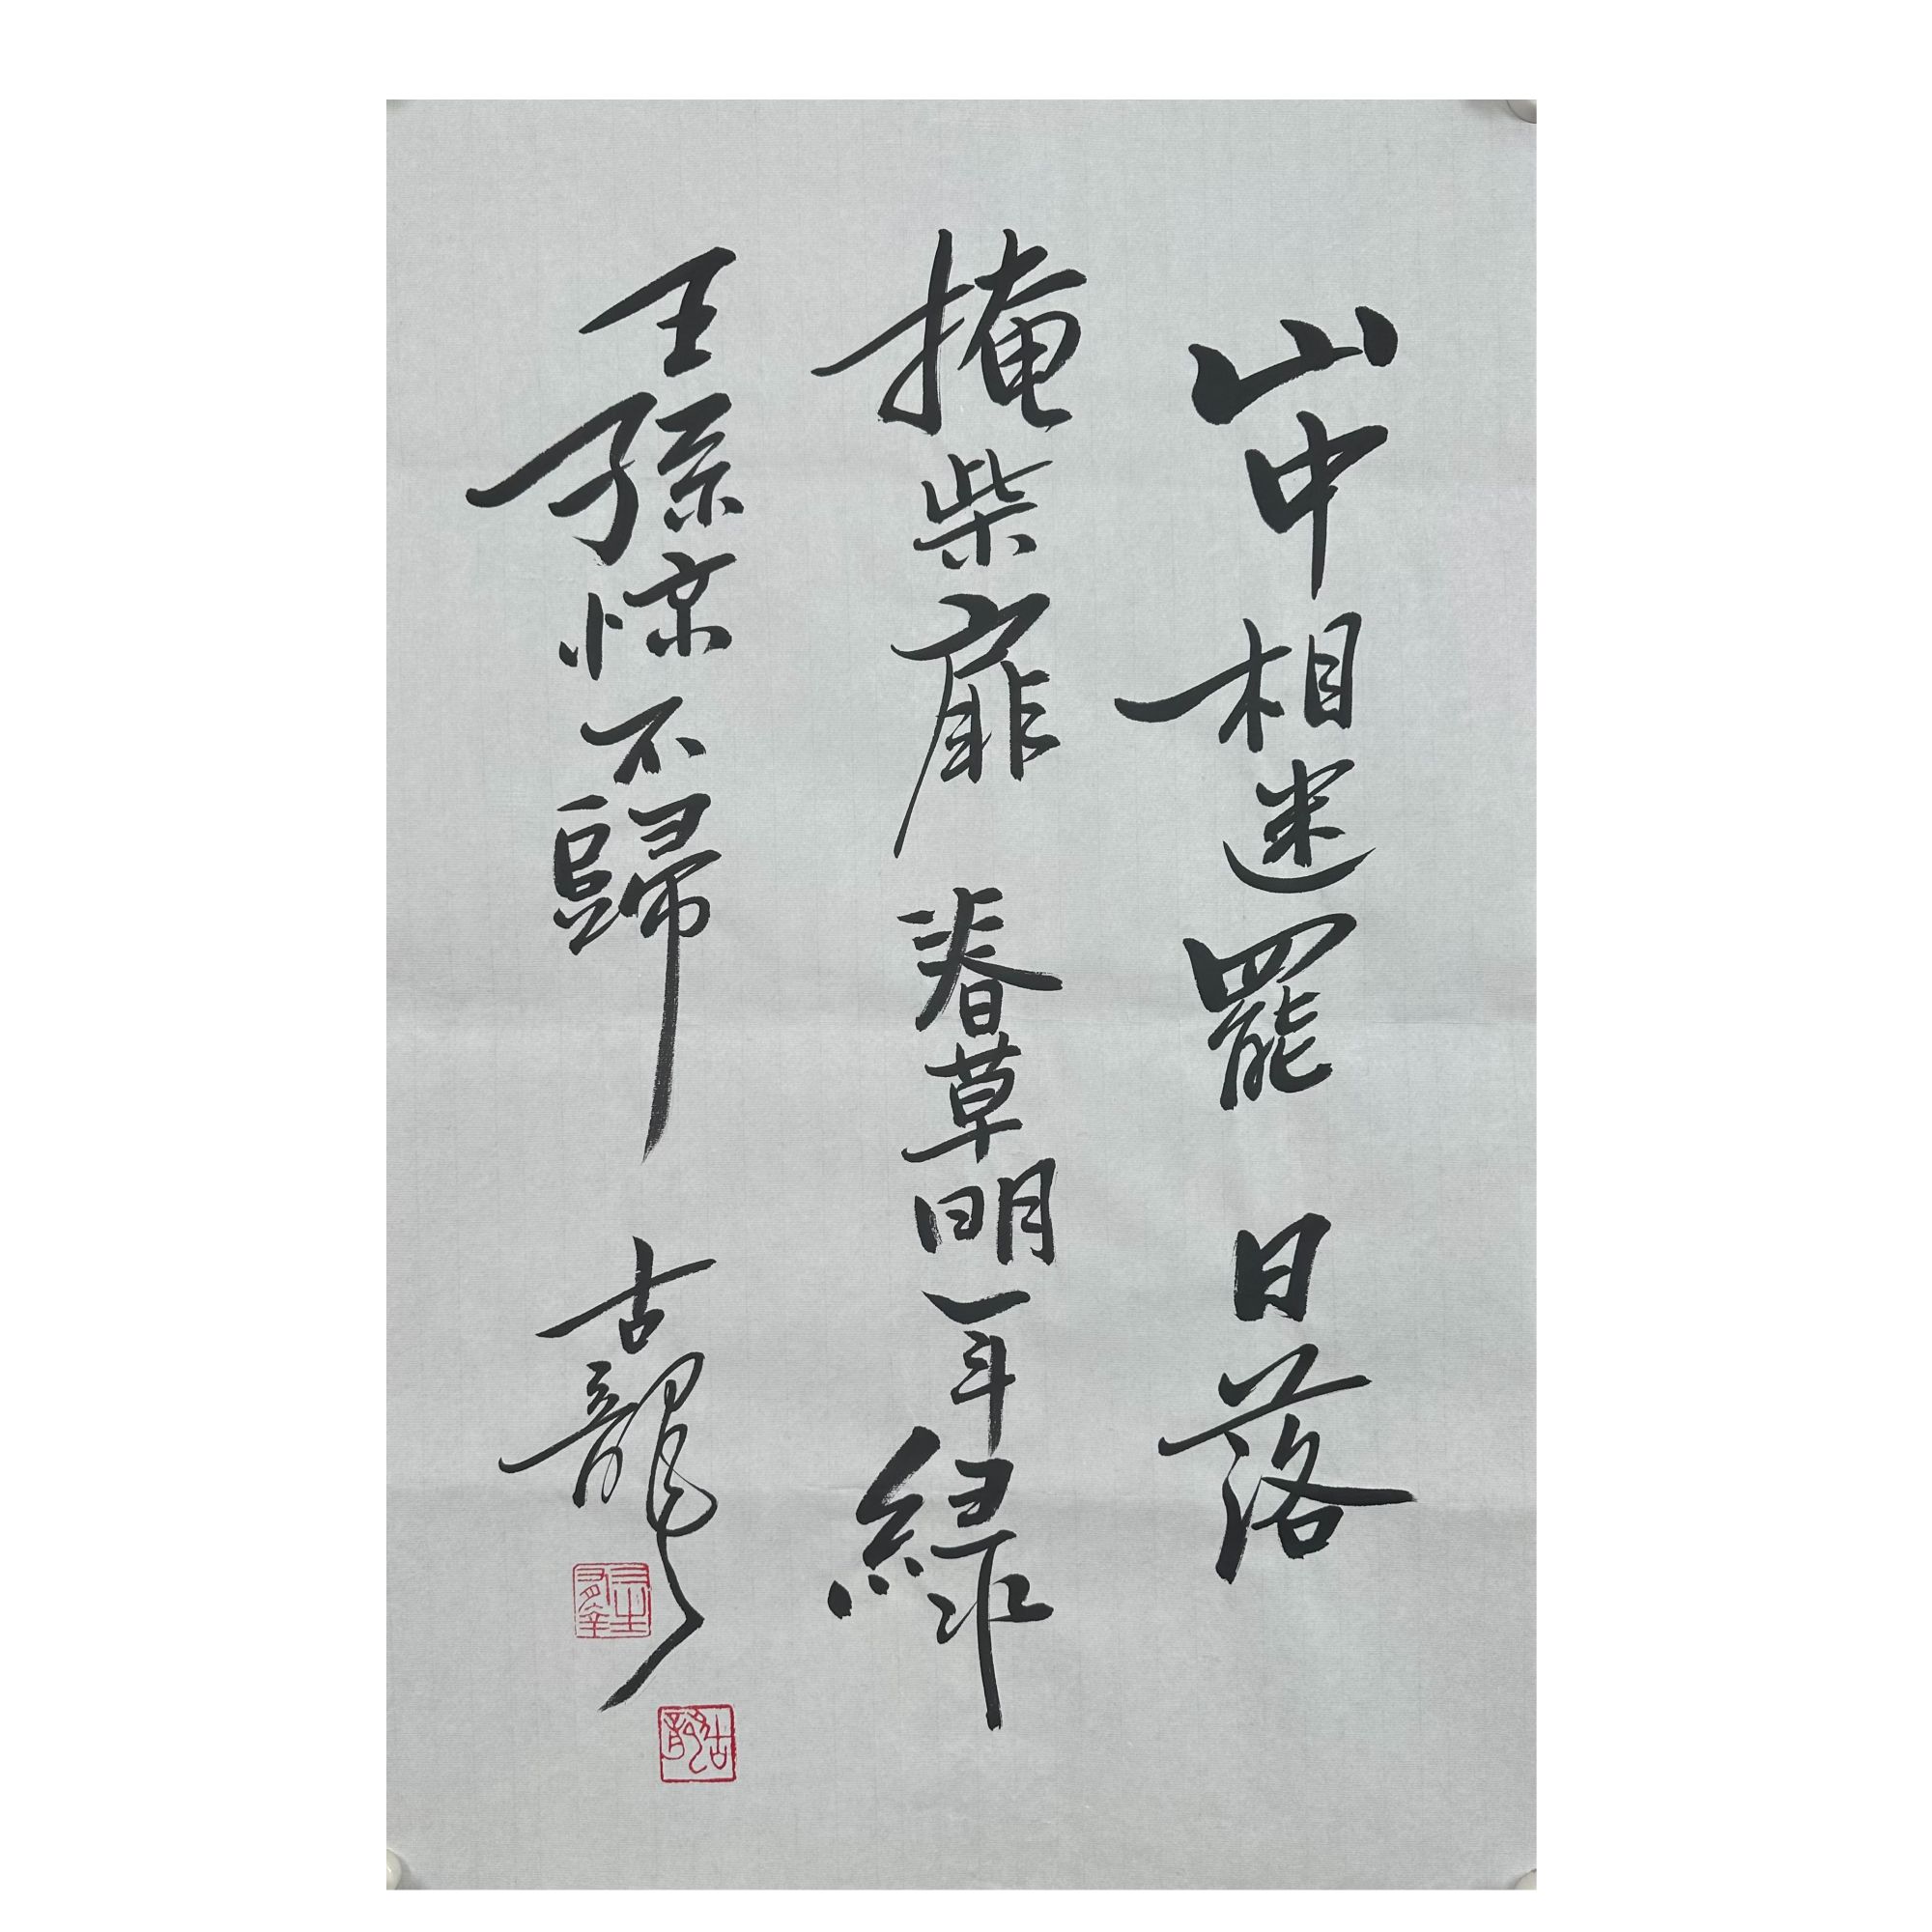 山中相送罷 日落
掩柴扉 春草明年緑
王孫惊不歸 古龍
古龍